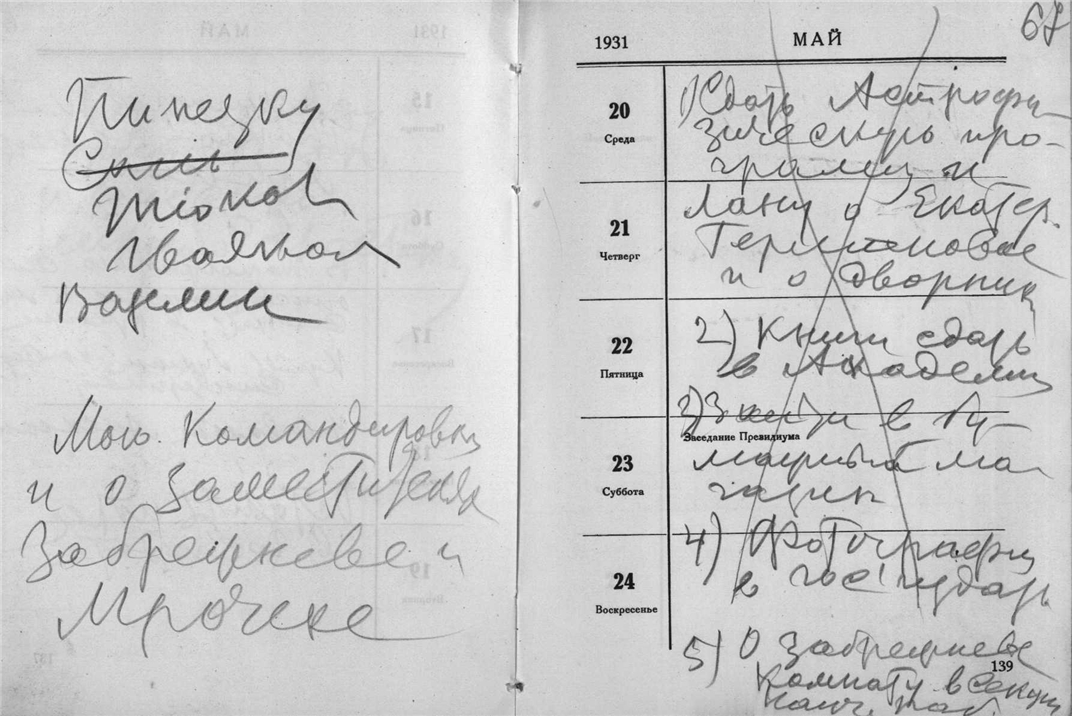 Пинезку
Тюков
Гваякол
Вазелин
Мою Командировку
и о Заместителя
Забрежневе и
Мрочке
67
1931 МАЙ
20
Среда
21
Четверг
22
Пятница
Заседание Президиума
23
Суббота
24
Воскресенье
1) Сдать Астрофи
зическую про-
грамму и
Лану о Екатер.
и о Дворник
2) Книги сдать
в Академию
3) Зайти в Бу-
мажный ма
газин
4) Фотографии
в гос. издать
5) О Забрежневе
Комнату в Секции
139